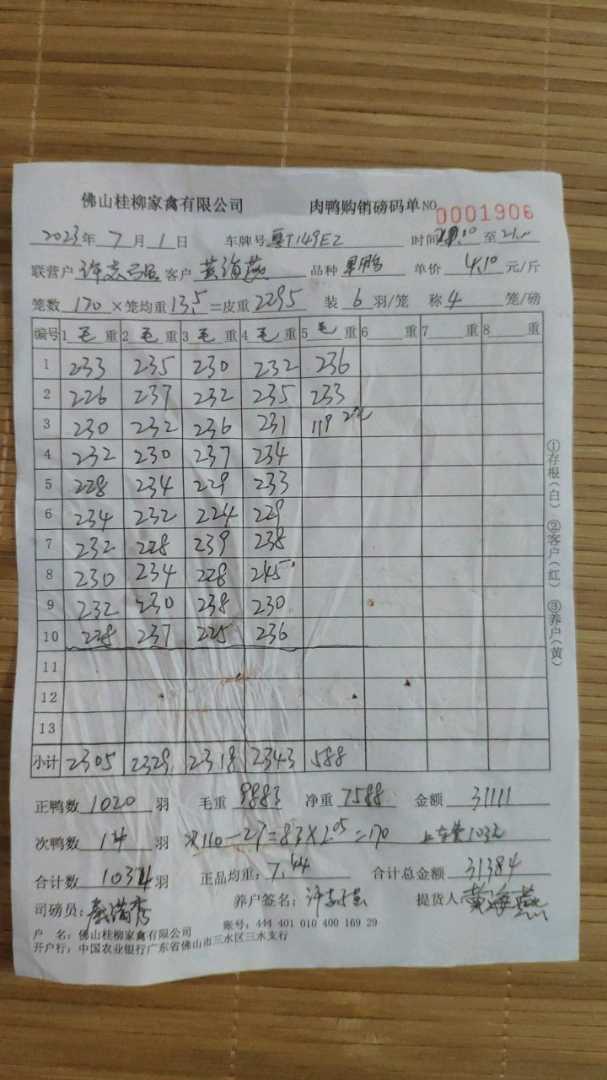 佛山桂柳家禽有限公司 肉鸭购销磅码单 NO 0001906
2023年 7 月 1 日 车牌号 粤T149EZ 时间 至
联营户 客户 黄海燕 品种 单价 4.10 元/斤
笼数 170 ×笼均重 13.5 =皮重 2295 装 6 羽/笼 称 4 笼/磅
编号 1 毛 重 2 毛 重 3 毛 重 4 毛 重 5 毛 重 6 重 7 重 8 重
1 233 235 230 232 236
2 226 237 232 235 233
3 230 232 236 231 119
4 232 230 237 234
5 228 234 229 233
6 234 232 224 229
7 232 228 239 238
8 230 234 228 245
9 232 230 238 230
10 228 237 225 236
11
12
13
小计 2305 2329 2318 2343 588
正鸭数 1020 羽 毛重 9883 净重 7588 金额 31111
次鸭数 14 羽 次110-27=83×2.05=170 上车费 103
合计数 1034 羽 正品均重: 7.44 合计总金额 31384
司磅员: 养户签名: 提货人 黄海燕
户 名: 佛山桂柳家禽有限公司 账号: 444 401 010 400 169 29
开户行: 中国农业银行广东省佛山市三水区三水支行
①存根(白) ②客户(红) ③养户(黄)